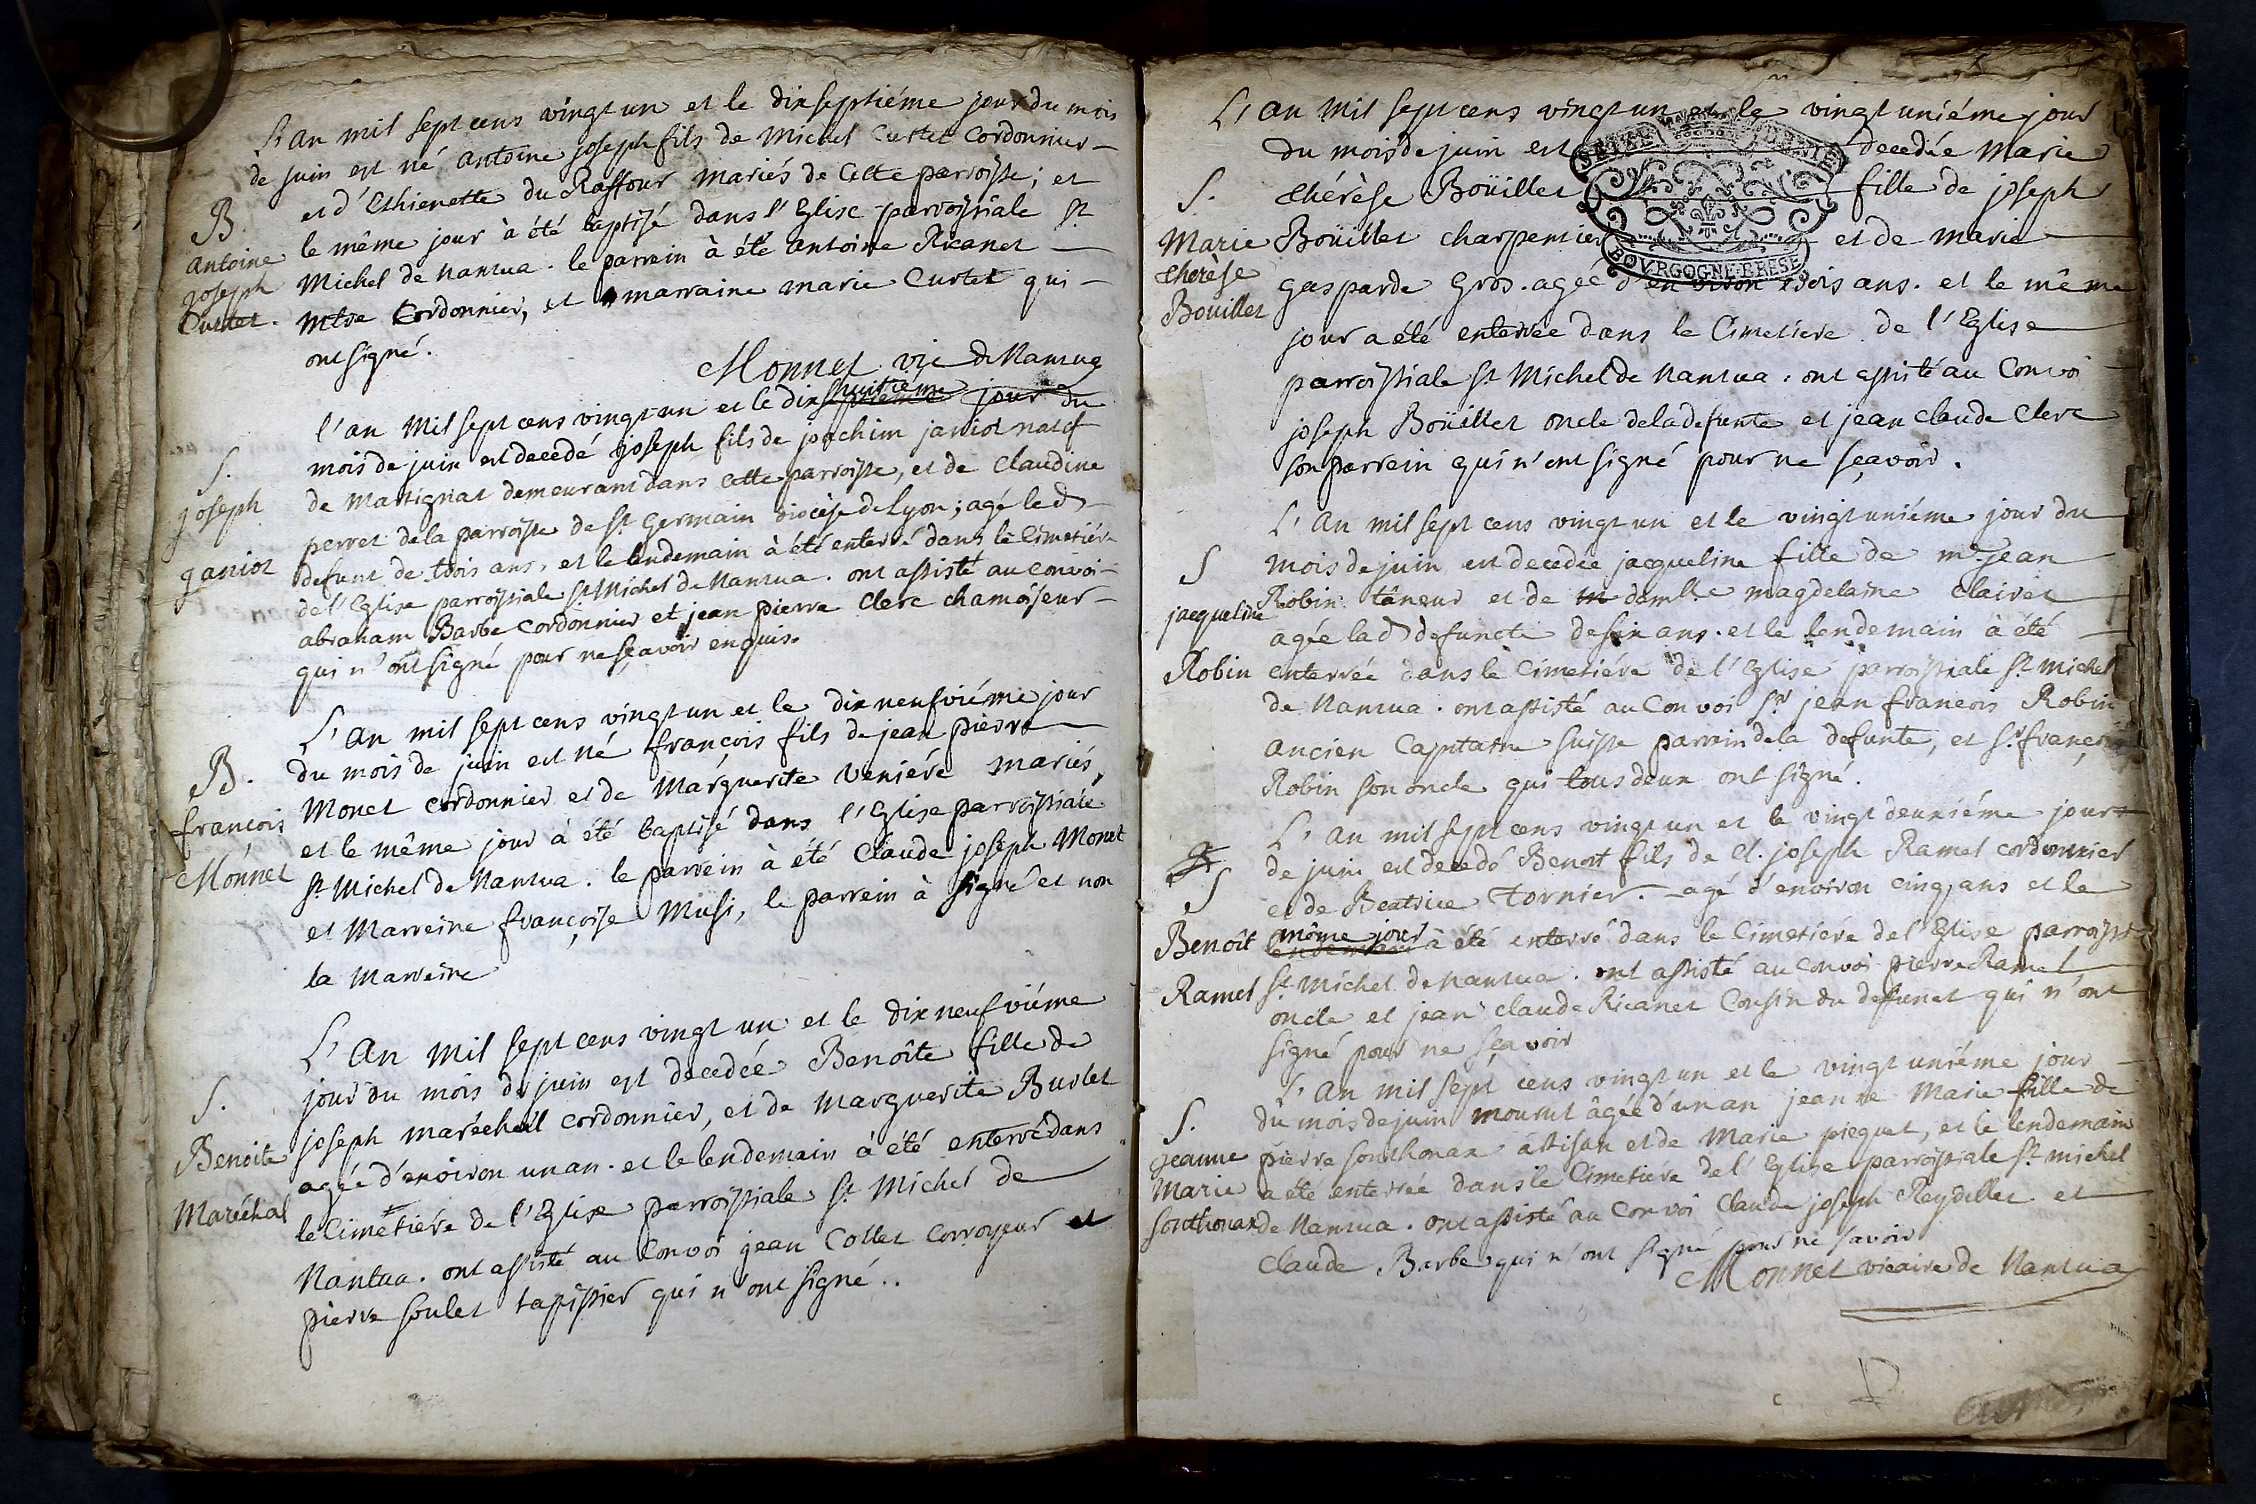 L'an mil sept cens vingt un et le dix septiéme jour du mois
de juin est né antoine joseph fils de Michel Curtet Cordonnier
et d'Ethienette du Raffour mariés de cette parroisse; et
B.
le même jour à été baptisé dans l'Eglise parroissiale St
antoine
joseph
Curtet.
Michel de nantua. le parrein à été antoine Ricanet
mtre Cordonnier, et marraine marie Curtet qui
ont signé.
Monnet vic de Nantua
l'an Mil sept cens vingt-un et le dix huitieme jour du
mois de juin est decedé joseph fils de joachim janiot natif
S.
joseph
ganiot
de Martignat demeurant dans cette parroisse, et de Claudine
perret de la parroisse de St Germain diocèse de Lyon; agé led
defunt de trois ans, et le lendemain à été enterré dans le Cimetiére
de l'Eglise parroissiale St Michel de Nantua. ont assisté au convoi
abraham Barbe Cordonnier et jean pierre Clerc chamoiseur
qui n'ont signé pour ne sçavoir enquis.
L'an mil sept cens vingt un et le dix neufviéme jour
du mois de juin est né françois fils de jean pierre
B.
françois
Monnet
Monet cordonnier et de Marguerite Veniére mariés,
et le même jour à été baptisé dans l'Eglise parroissiale
St Michel de Nantua. le parrein à été Claude joseph Monet
et Marreine françoise Musi, le parrein à signé et non
la Marreine
L'An mil sept cens vingt un et le dix neufviéme
jour du mois de juin est decedée Benoîte fille de
S.
Benoite
Maréchal
joseph maréchal cordonnier, et de Marguerite Burlet
agée d'environ un an. et le lendemain à été enterré dans
le Cimetiére de l'Eglise parroissiale St Michel de
Nantua. ont assisté au Convoi jean Collet Corroyeur et
pierre soulet tapissier qui n'ont signé..
L'an mil sept cens vingt un et le vingt uniéme jour
du mois de juin est decedée Marie
S.
Marie
therèse
Boüillet
thérèse Boüillet fille de joseph
Boüillet charpentier et de Marie
gasparde gros. agée d'environ trois ans. et le même
jour a été enterrée dans le Cimetiere de l'Eglise
parroissiale St Michel de Nantua. ont assisté au Convoi
joseph Boüillet oncle de la defunte et jean claude Clerc
son parrein qui n'ont signé pour ne sçavoir.
SETIER
BOVRGOGNE-BRESE
L'an mil sept cens vingt un et le vingt uniéme jour du
S
jacqueline
Robin
mois de juin est decedée jacqueline fille de mre jean
Robin tâneur et de damlle magdelaine Clairet
agée lad defuncte de six ans. et le lendemain à été
enterrée dans le Cimetiére de l'Eglise parroissiale St michel
de Nantua. ont assisté au Convoi Sr jean francois Robin
ancien Capitaine Suisse parrein de la defunte, et Sr françois
Robin son oncle qui tous deux ont signé.
L'an mil sept cens vingt un et le vingt deuxiéme jour
de juin est decedé Benoit fils de Cl. joseph Ramel cordonnier
S
Benoît
Ramel
et de Beatrice Tornier. agé d'environ cinq ans et le
même jour à été enterré dans le Cimetiére de l'Eglise parroiss
St Michel de Nantua. ont assisté au convoi pierre Ramel
oncle et jean claude Ricanet Cousin du deffunct qui n'ont
signé pour ne sçavoir
L'an mil sept cens vingt un et le vingt uniéme jour
du mois de juin mourut âgée d'un an jeanne Marie fille de
S.
jeanne
Marie
Southonax
pierre Southonax artisan et de Marie picquet, et le lendemain
a été enterrée dans le Cimetiere de l'Eglise parroissiale St michel
de Nantua. ont assisté au Convoi Claude joseph Reydellet et
Claude Barbe qui n'ont signé pour ne sçavoir
Monnet vicaire de Nantua